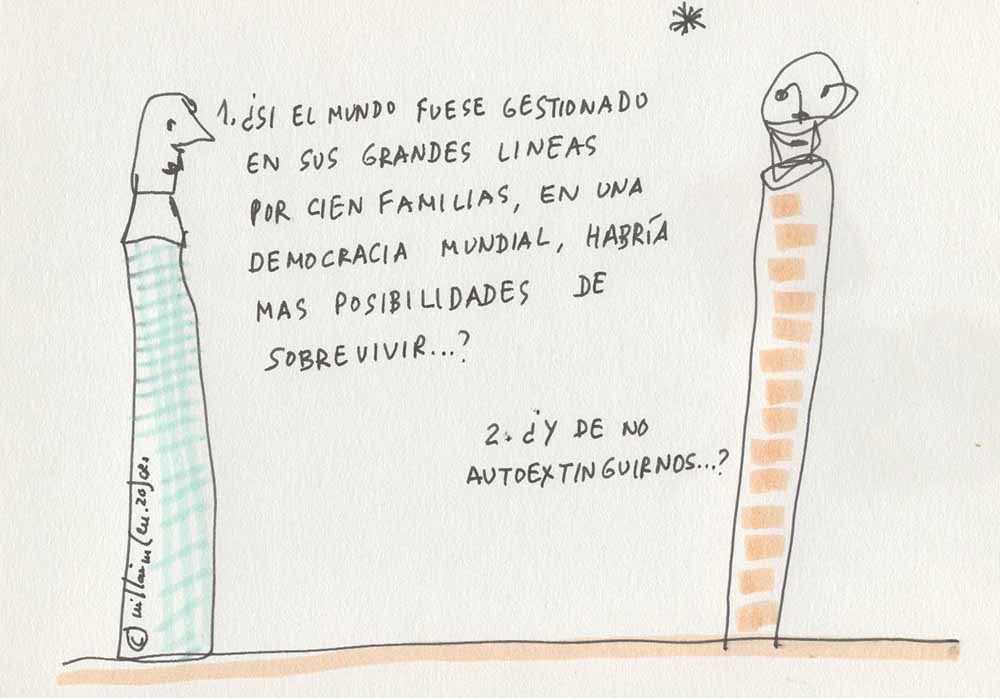 1. ¿SI EL MUNDO FUESE GESTIONADO
EN SUS GRANDES LINEAS
POR CIEN FAMILIAS, EN UNA
DEMOCRACIA MUNDIAL, HABRÍA
MAS POSIBILIDADES DE
SOBREVIVIR...?
2. ¿Y DE NO
AUTOEXTINGUIRNOS...?
©